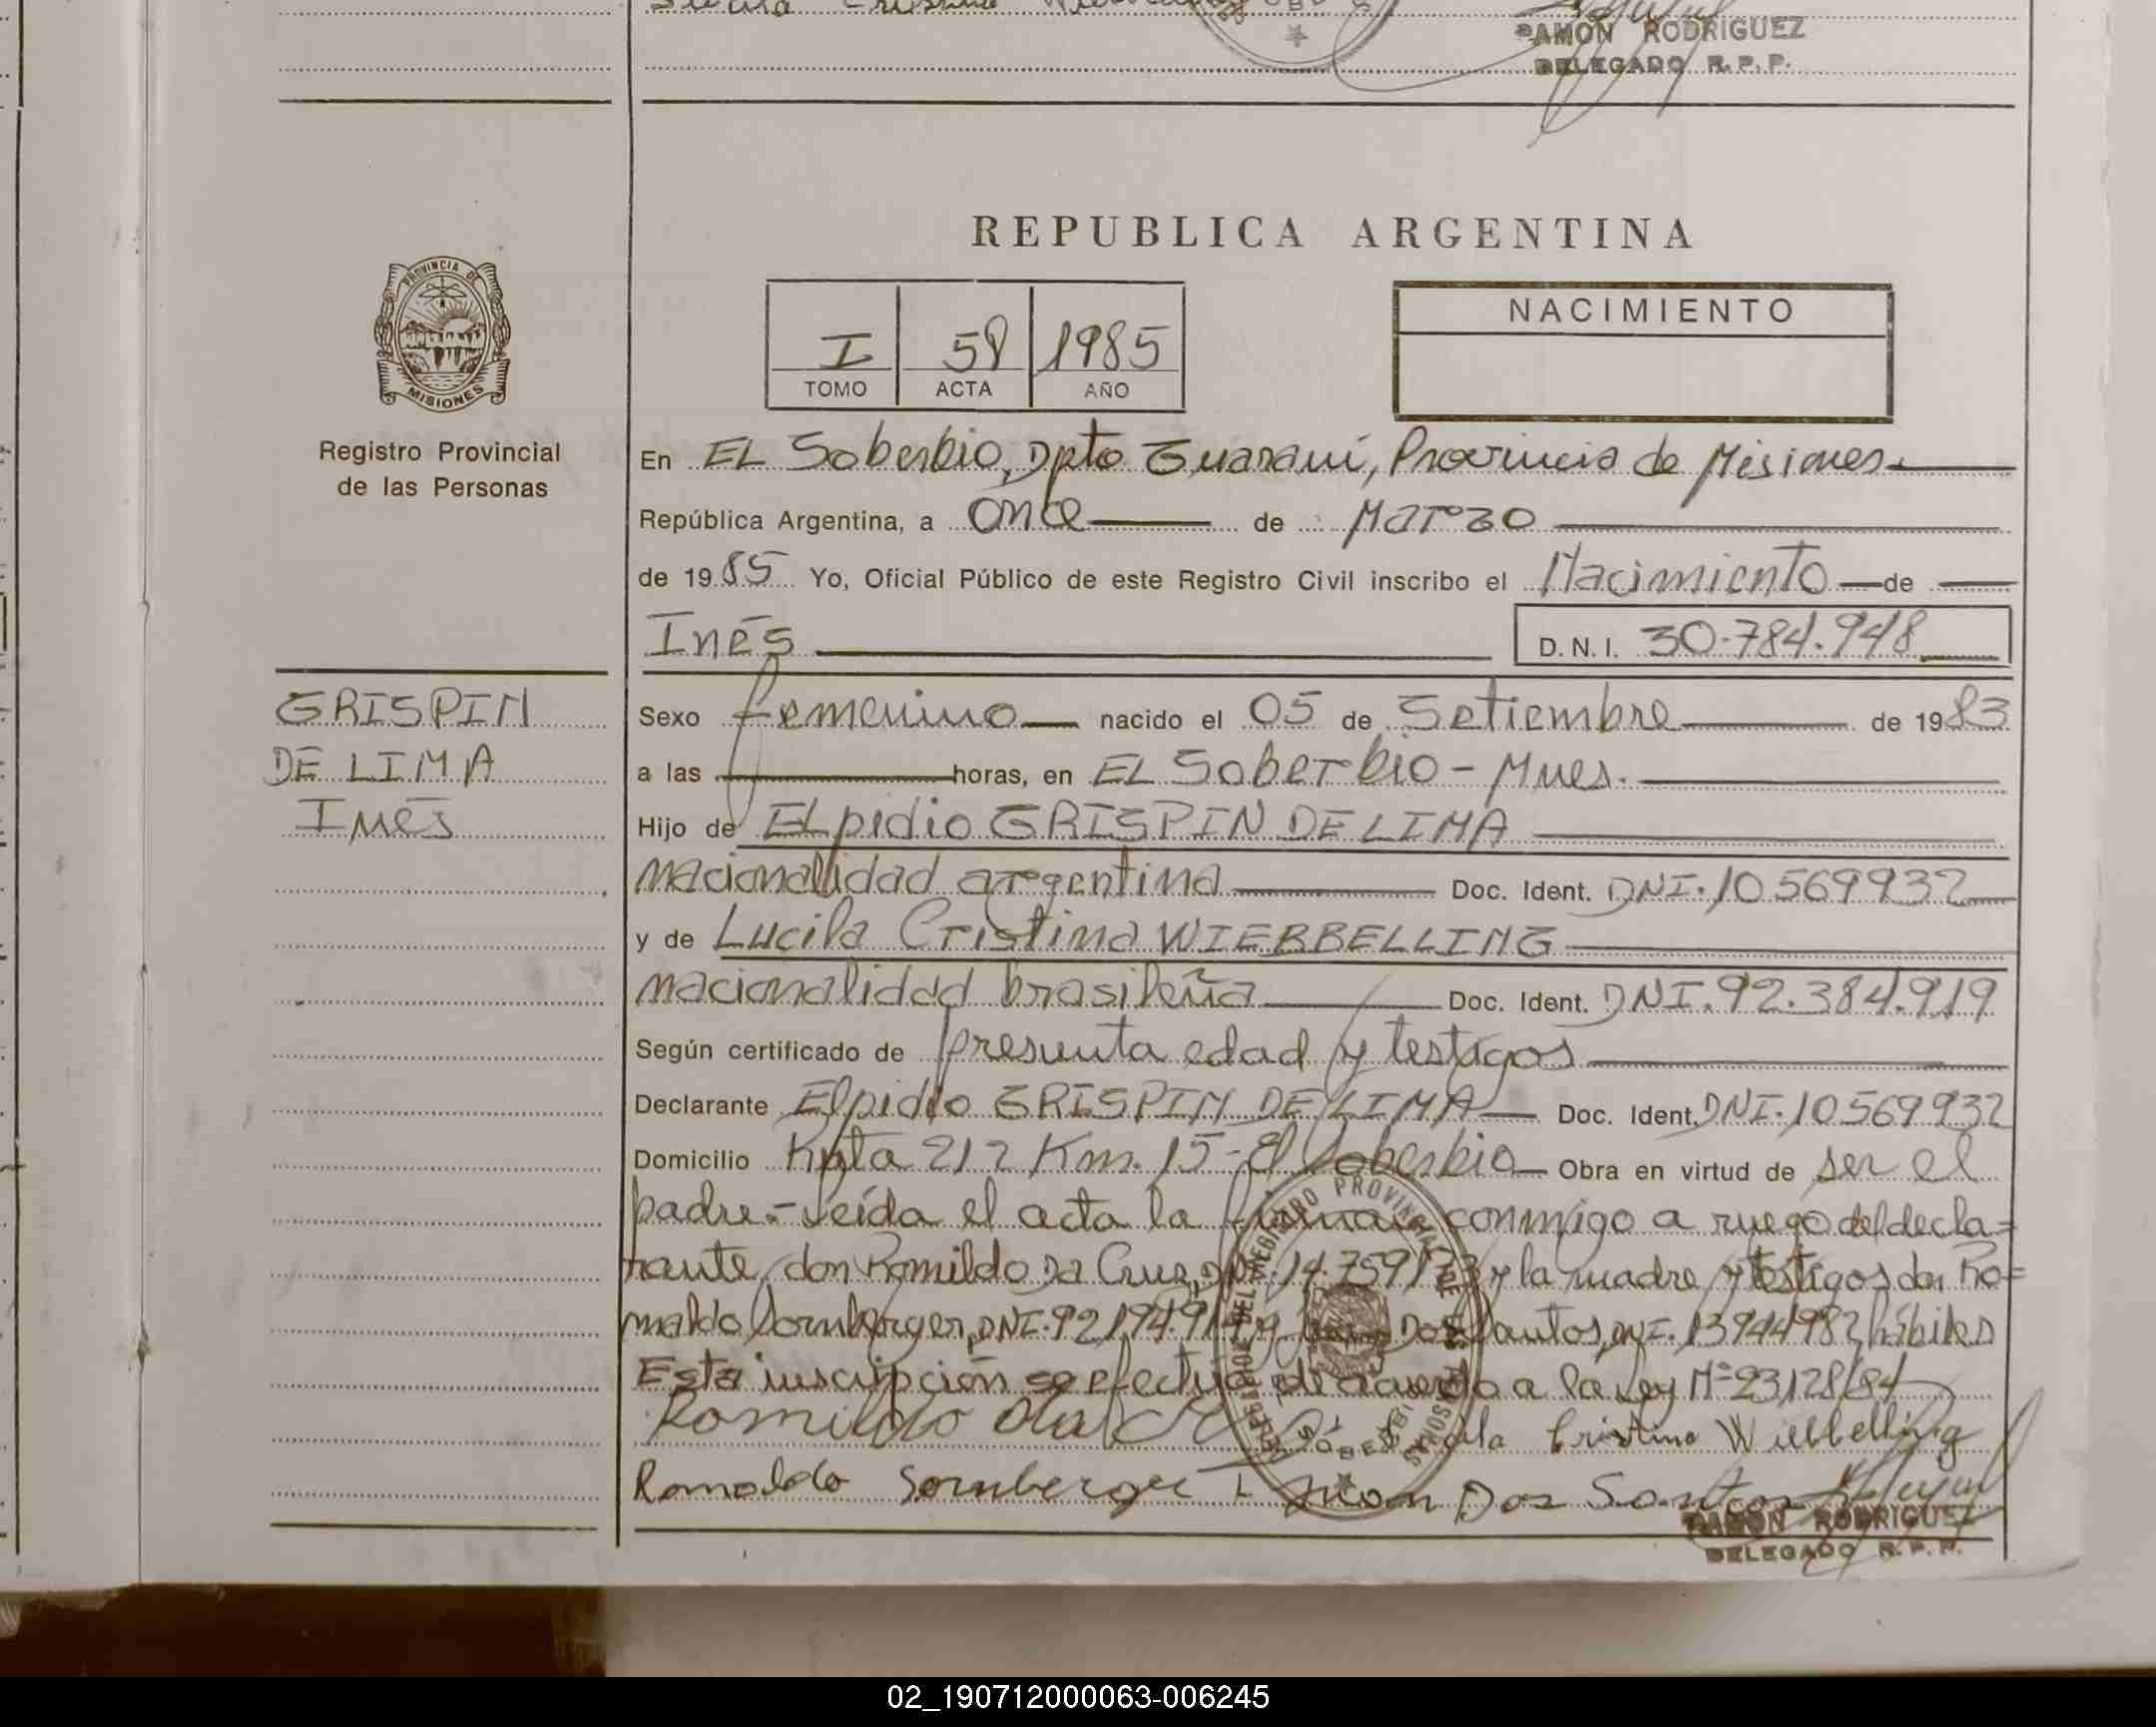 RAMON RODRIGUEZ
DELEGADO R. P. P.
REPUBLICA ARGENTINA
PROVINCIA DE
MISIONES
Registro Provincial
de las Personas
I 58 1985
TOMO ACTA AÑO
NACIMIENTO
En EL Soberbio, Dpto Guaraní, Provincia de Misiones
República Argentina, a once de Marzo
de 1985 Yo, Oficial Público de este Registro Civil inscribo el Nacimiento de
Inés D. N. I. 30.784.948
GRISPIN
DE LIMA
Inés
Sexo femenino nacido el 05 de Setiembre de 1983
a las horas, en EL Soberbio - Mnes.
Hijo de ELpidio GRISPIN DE LIMA
nacionalidad argentina Doc. Ident. DNI. 10569932
y de Lucila Cristina WIERBELLING
nacionalidad brasileña Doc. Ident. DNI. 92.384.919
Según certificado de presunta edad y testigos
Declarante Elpidio GRISPIN DE LIMA Doc. Ident. DNI. 10569932
Domicilio Ruta 212 Km. 15 - El Soberbio Obra en virtud de ser el
padre.- Leída el acta la firman conmigo a ruego del decla=
rante, don Romildo Da Cruz, DNI. 14.759173 y la madre y testigos don Ro=
maldo Sornberger, DNI. y Dos Santos, DNI. 13944982, hábiles
Esta inscripción se efectúa de acuerdo a la Ley Nº 23128/84
Romildo da Cristina Wierbelling
Romaldo Sornberger Juan Dos Santos
RAMON RODRIGUEZ
DELEGADO R. P. P.
02_190712000063-006245